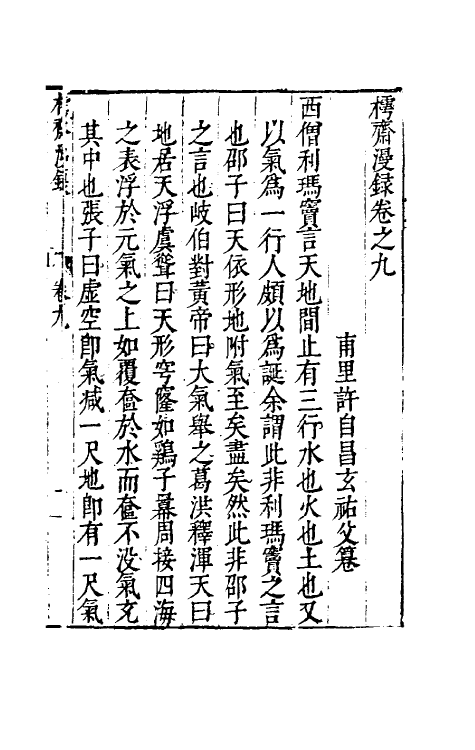 樗齋漫録卷之九
甫里許自昌玄祐父纂
西僧利瑪竇言天地間止有三行水也火也土也又
以氣爲一行人頗以爲誕余謂此非利瑪竇之言
也邵子曰天依形地附氣至矣盡矣然此非邵子
之言也岐伯對黃帝曰大氣舉之葛洪釋渾天曰
地居天浮虞聳曰天形穹窿如鷄子幕周接四海
之表浮於元氣之上如覆奩於水而奩不没氣充
其中也張子曰虛空卽氣减一尺地卽有一尺氣
樗齋漫録
卷九
一